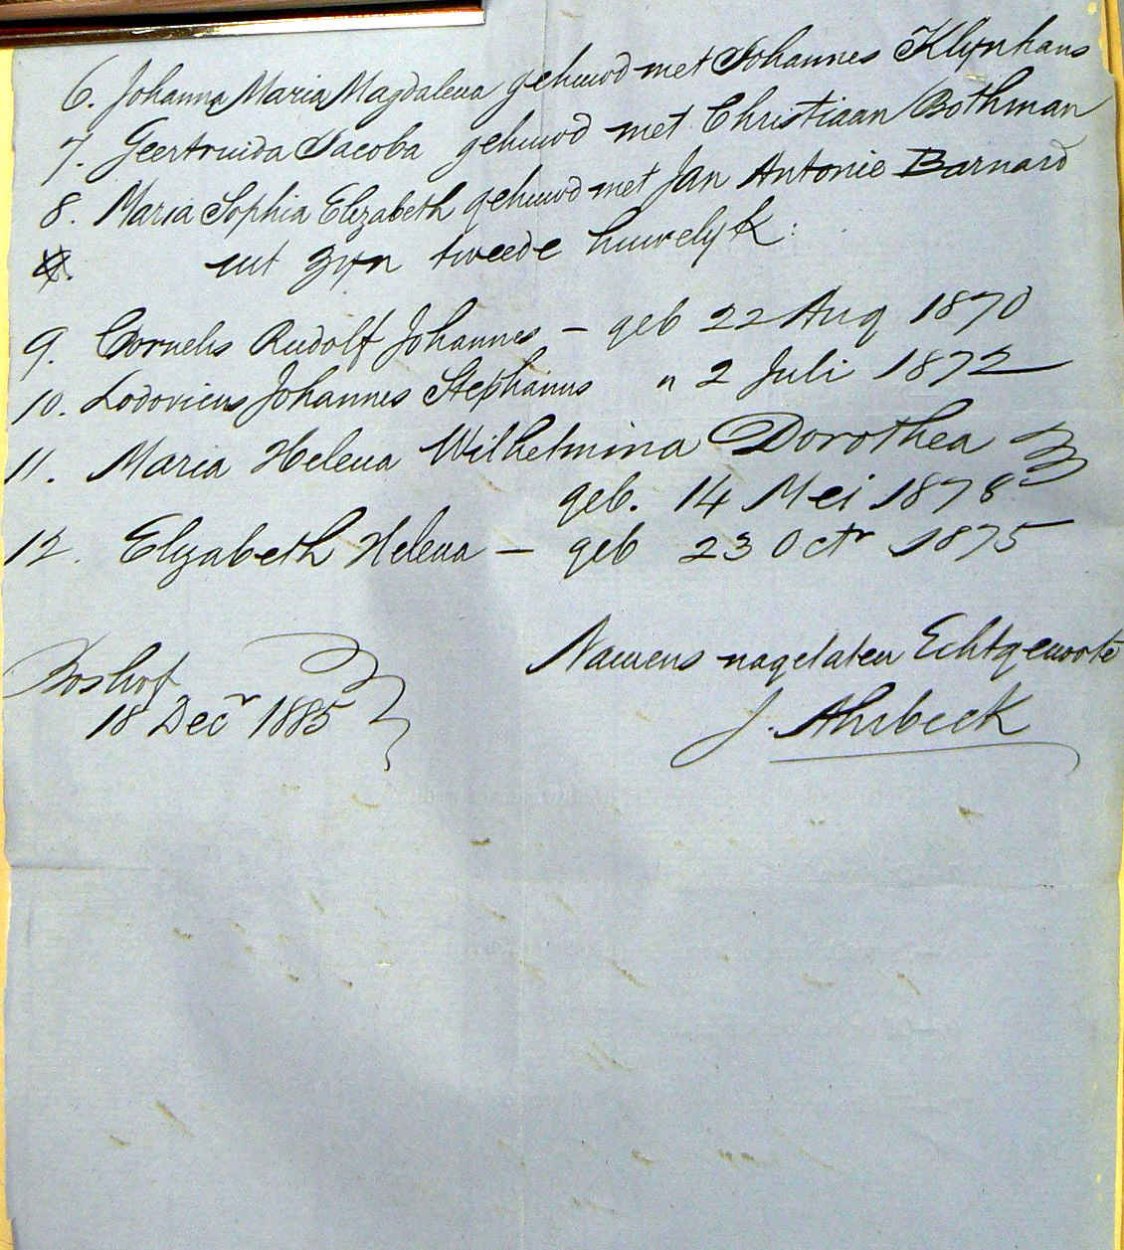 6. Johanna Maria Magdalena gehuwd met Johannes Klynhans
7. Geertruida Jacoba gehuwd met Christiaan Bothman
8. Maria Sophia Elizabeth gehuwd met Jan Antonie Barnard
uit zyn tweede huwelyk:
9. Cornelis Rudolf Johannes – geb 22 Aug 1870
10. Lodovicus Johannes Stephanus " 2 Juli 1872
11. Maria Helena Wilhelmina Dorothea
geb. 14 Mei 1878
12. Elizabeth Helena – geb 23 Octr 1875
Namens nagelaten Echtgenoote
Boshof
18 Decr 1885
J. Ahrbeck